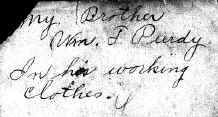 My Brother
Wm. T Purdy
In his working
clothes.